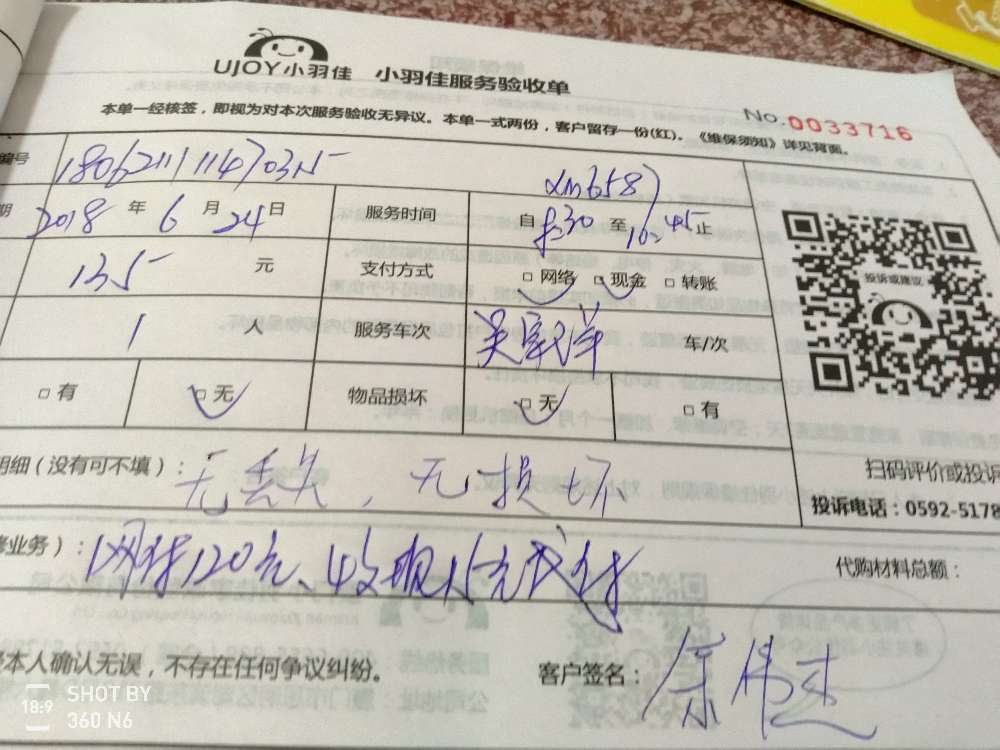 UJOY小羽佳 小羽佳服务验收单
No.0033716
本单一经核签，即视为对本次服务验收无异议。本单一式两份，客户留存一份(红)。《维保须知》详见背面。
编号
2018 年 6 月 24 日 服务时间 自 至 10:45 止
135 元 支付方式 □ 网络 □ 现金 □ 转账
1 人 服务车次 车/次
□ 有 □ 无 物品损坏 □ 无 □ 有
投诉或建议
扫码评价或投诉
明细（没有可不填）： 无丢失，无损坏
投诉电话：0592-5178
修业务）： 120元
代购材料总额：
本人确认无误，不存在任何争议纠纷。 客户签名：
SHOT BY
18:9 360 N6